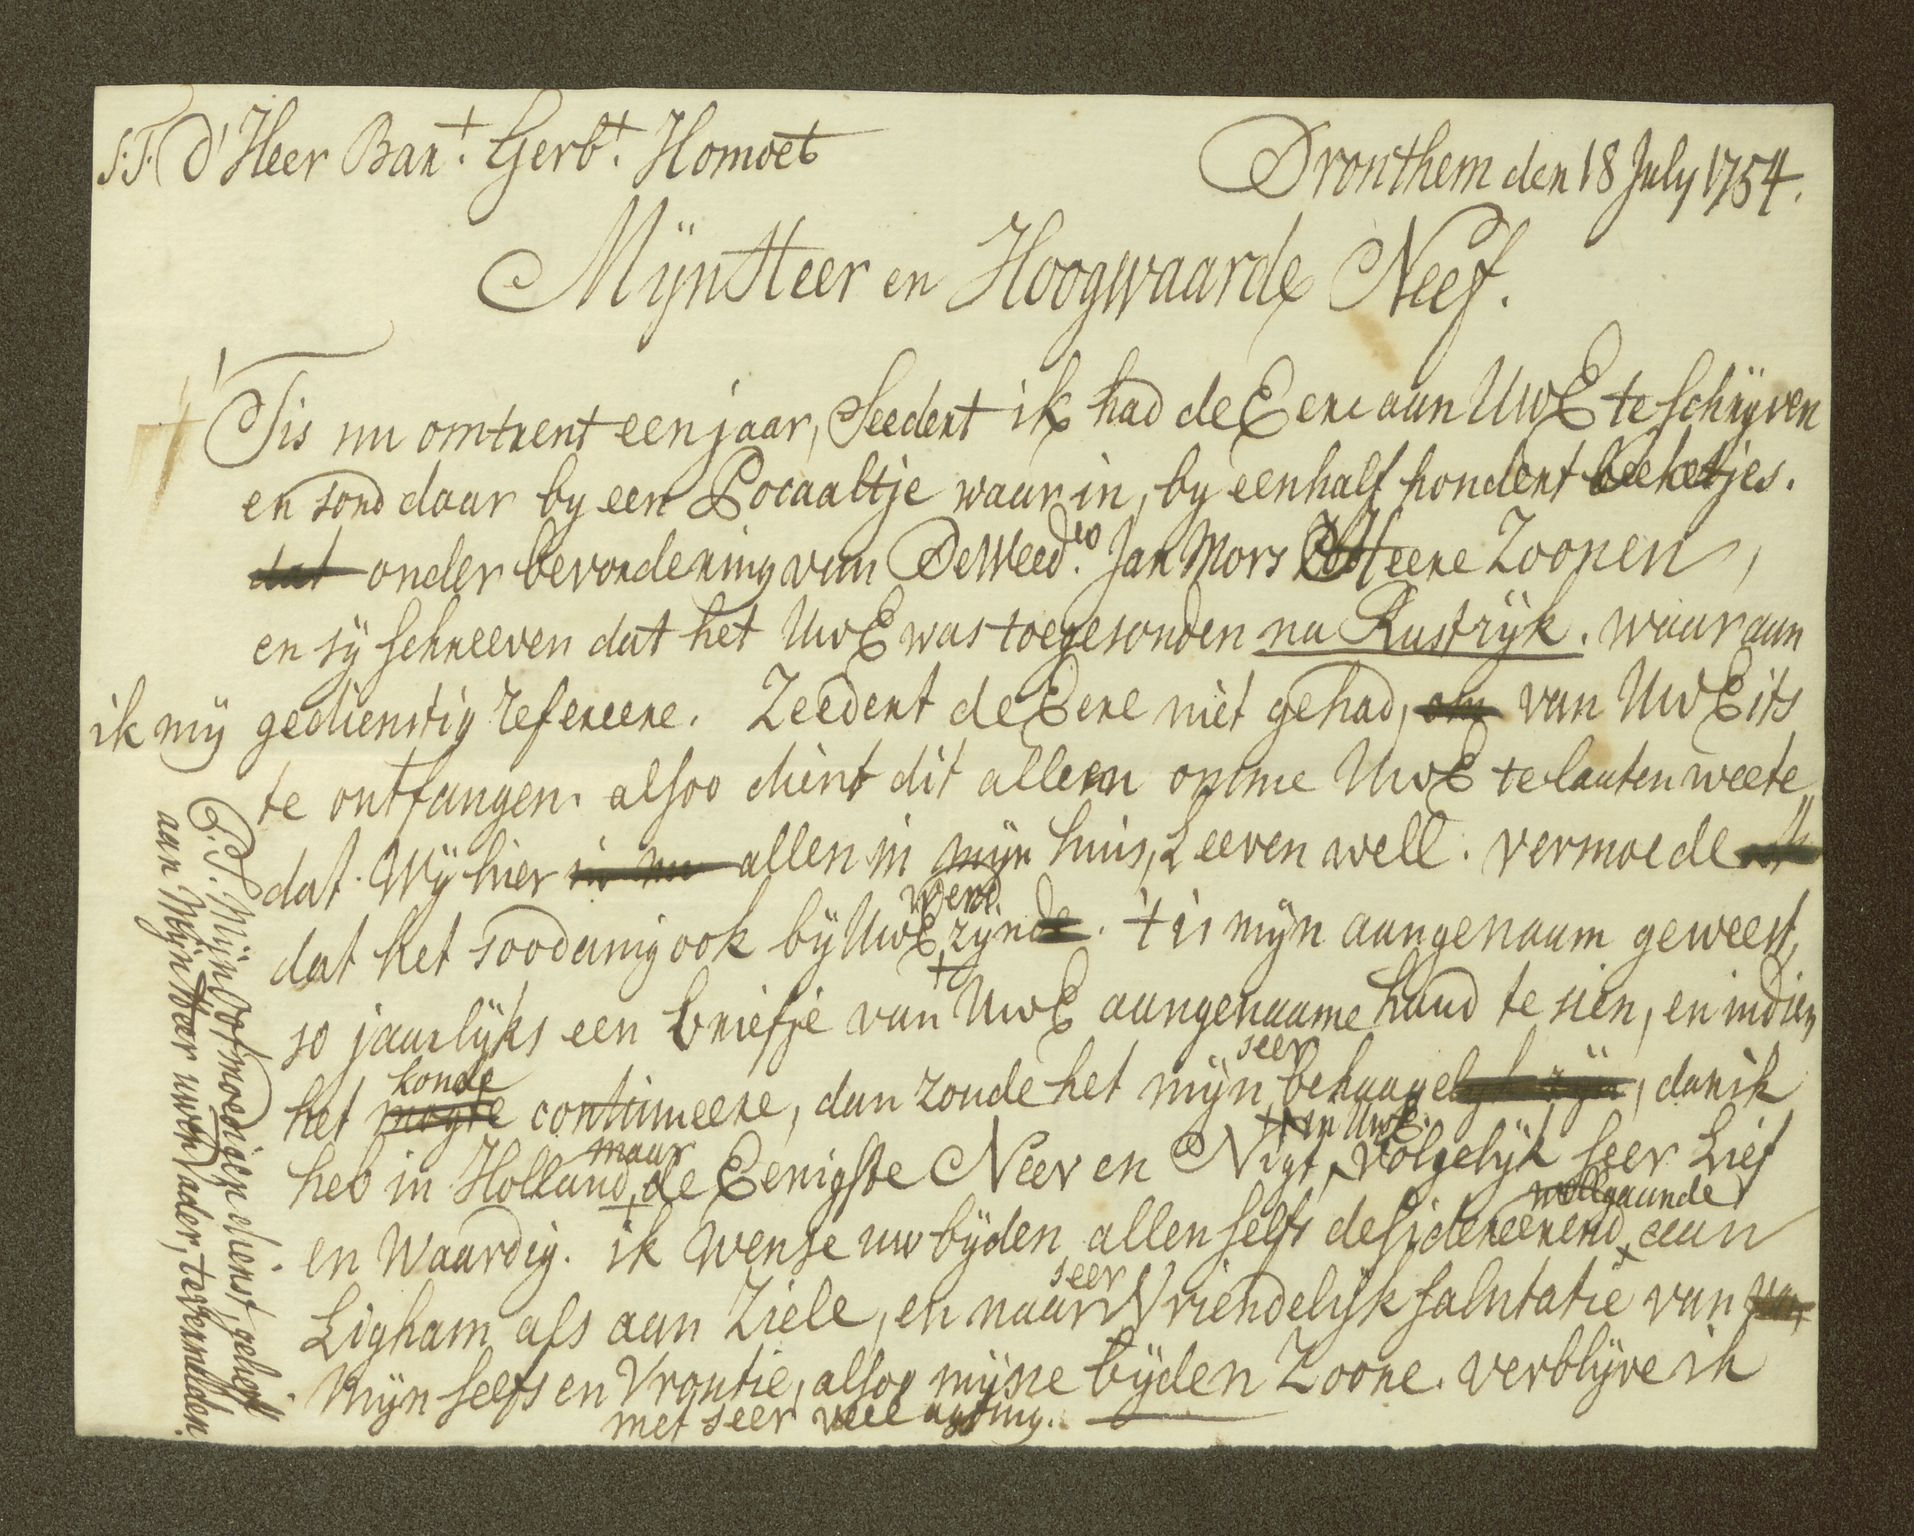 S:T. d'Heer Bart. Gerbt. Homoet
Dronthem den 18 July 1754.
Mÿn Heer en Hoogwaarde Neef.
'Tis nu omtrent een jaar, Seedert ik had de Eere aan UwE te schryven
en sond daar by een Pocaaltje waar in, by een half hondert beeketjes.
dat onder bevordering van De Weedw. Jan Mors Heere Zoonen,
en sÿ schreeven dat het UwE was toegesonden na Rustrÿk. waar aan
ik mÿ gedienstig refereere. Zeedert de Eere niet gehad, om van UwE its
te ontfangen. alsoo dient dit alleen omme UwE te laaten weete
dat. Wÿ hier allen in mÿn huis, Leeven well. vermoede
werd.
dat het soodanig ook bÿ UwE zÿnde. t is mÿn aangenaam geweest,
so jaarlÿks een briefje van UwE aangenaame hand te sien, en indien
konde
seer
het mogte continueere, dan zoude het mÿn behaagelyk zÿn, dan ik
maar
in UwE.
heb in Holland, de Eenigste Neev en Nigt, volgelÿk seer Lief
wellgaande
en Waardig. ik Wense uw bÿden allen selfs desidereerend, aan
seer
Ligham als aan Ziele, en naar Vriendelÿk salutatie van
Mÿn seefs en Vroutie, alsoo mÿne bÿden Zoone. verblÿve ik
met seer veel agting.
P.S. Mÿn ootmoedigen dienst, gelieft
aan Mÿn Heer uwen Vader, te vermelden.